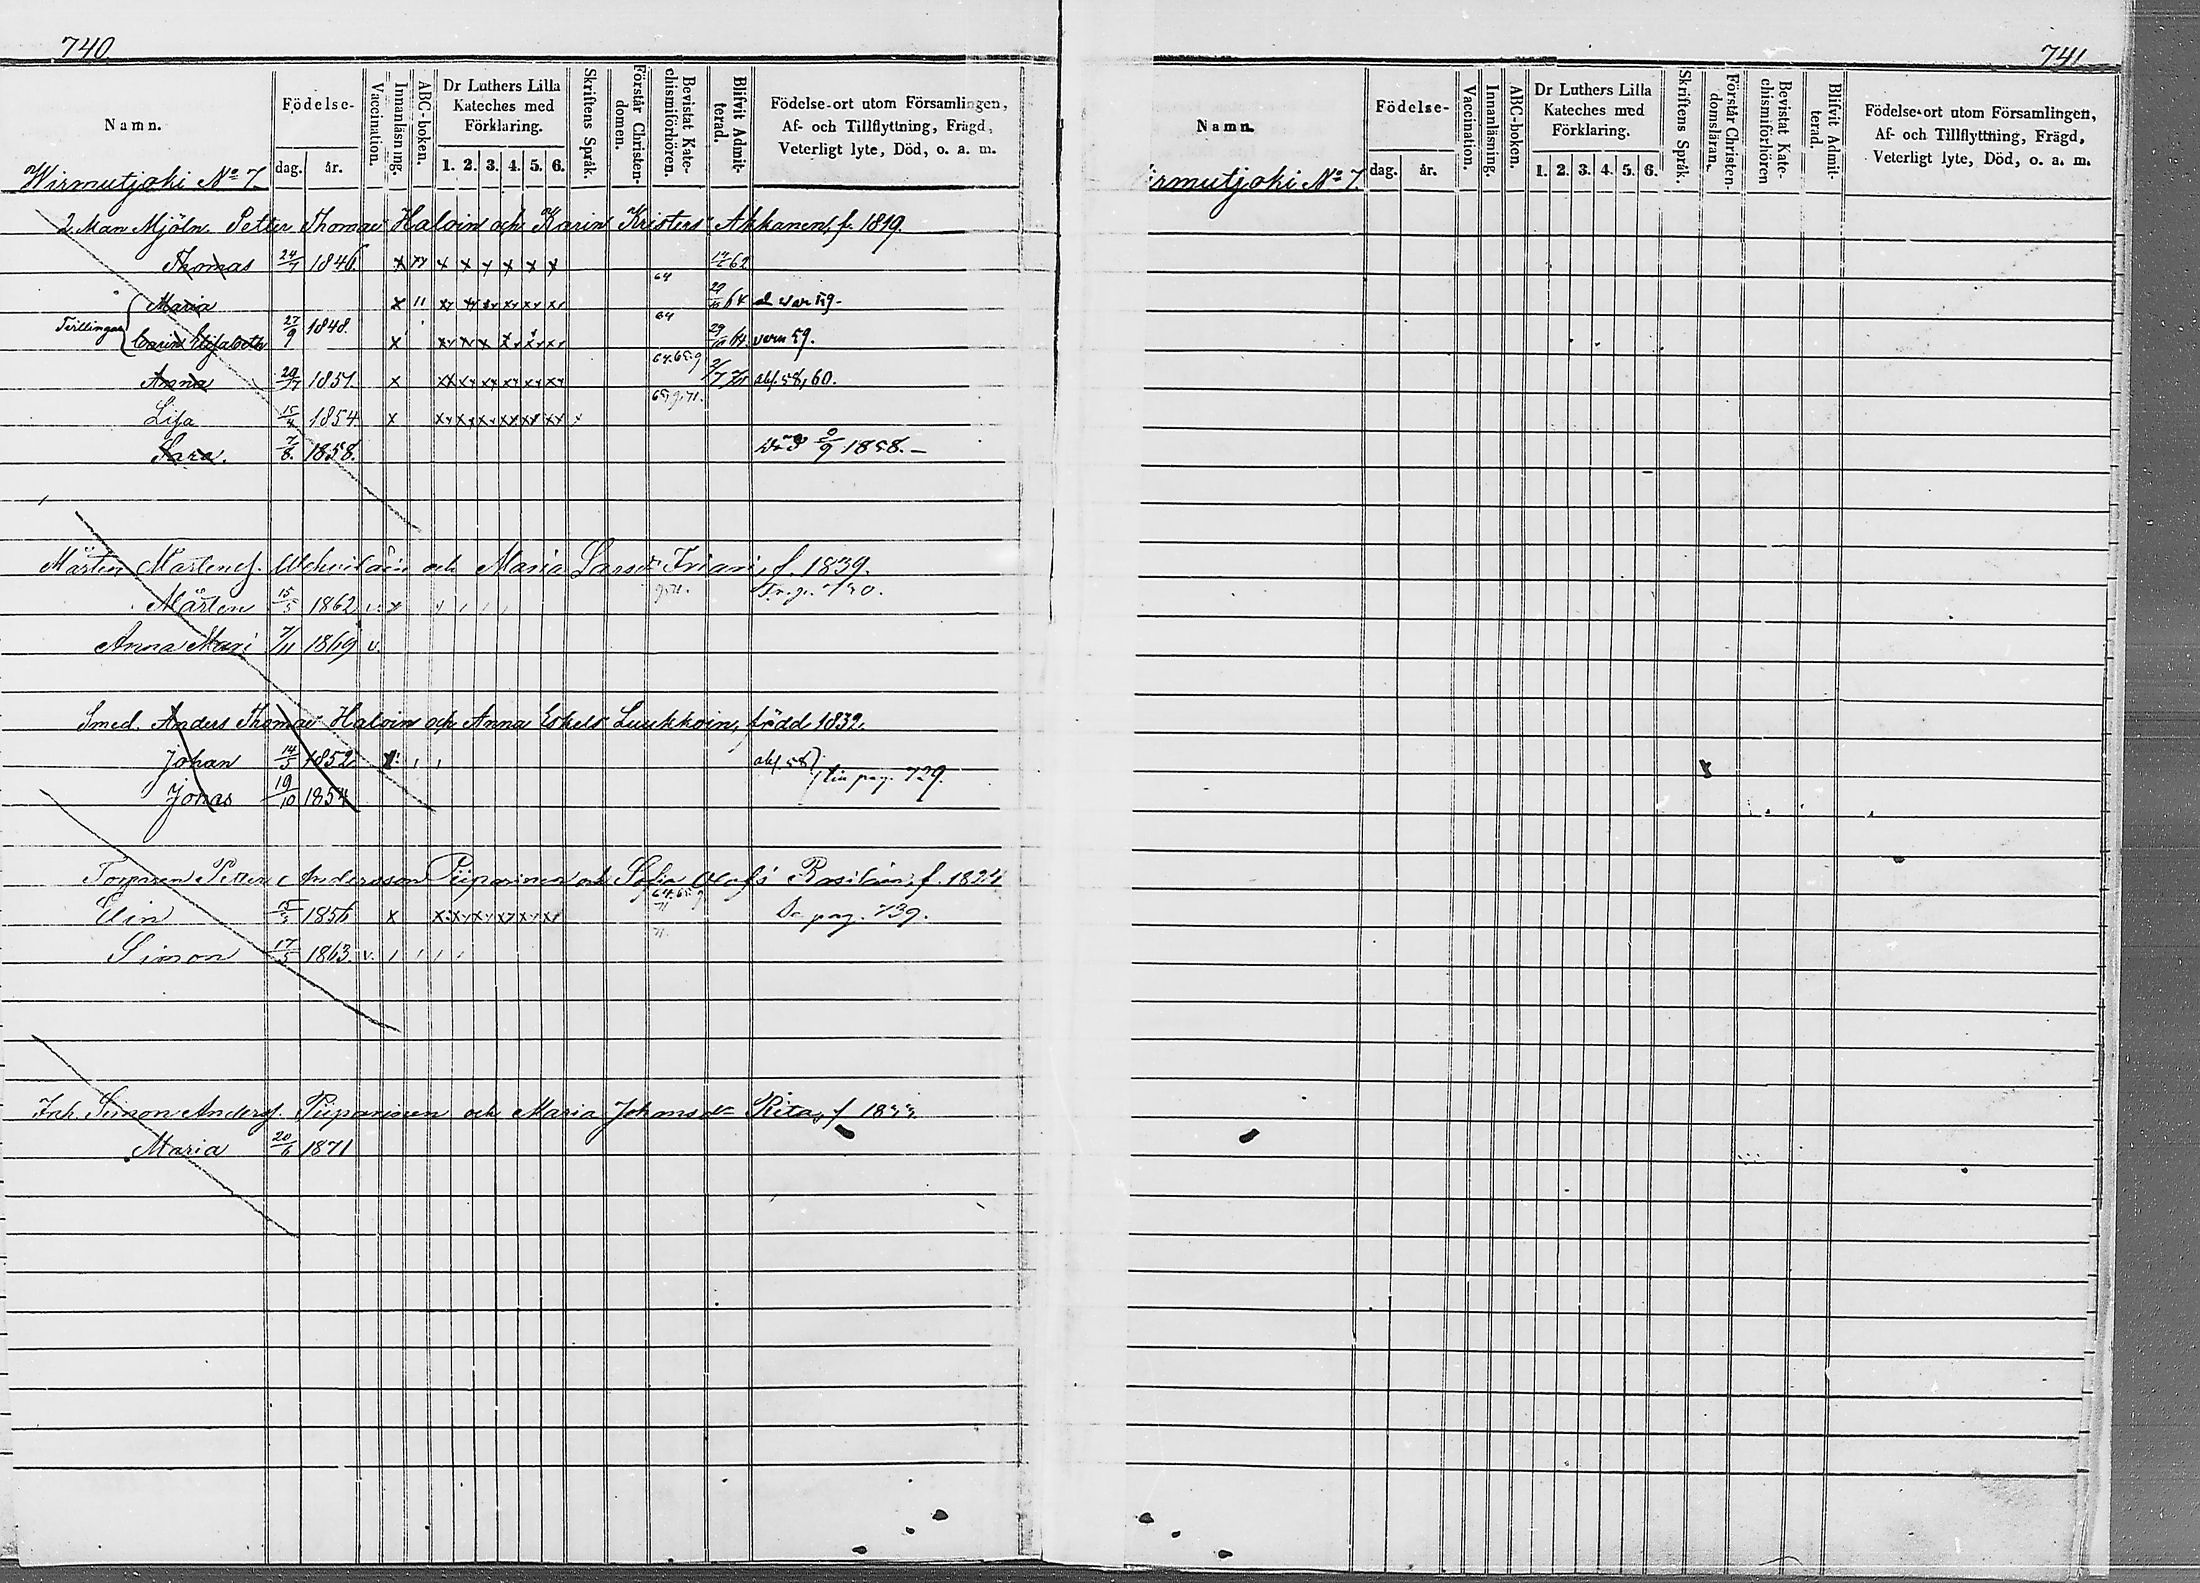 740.
Namn. Födelse- dag. år. Vaccination. Innanläsning. ABC-boken. Dr Luthers Lilla Kateches med Förklaring. 1. 2. 3. 4. 5. 6. Skriftens Språk. Förstår Christendomen. Bevistat Katechismiförhören. Blifvit Admitterad. Födelse-ort utom Församlingen, Af- och Tillflyttning, Frägd, Veterligt lyte, Död, o. a. m.
Wirmutjoki No 7.
2. Man Mjöln. Petter Thomas Haloin och Karin Kristers Akkanen, f. 1819.
Thomas 24/7 1846. x x x x x x x 62
Maria x " xx xx xx xx xx xx 64 64
27/9 1848.
Carin Elisabeth x 64 29/10 64.
Anna 1851. x xx xx xx xx xx xx 64.65.9 abs. 58, 60.
Lisa 15/4 1854 x xx xx xx xx xx xx x
Sara. 7/8. 1858. död 9/9 1858. –
Mårten Mårtens. och Maria Larsd:r f. 1839.
Mårten 15/5 1862 v. x 9.71.
Anna Mari 7/11 1869 v.
Smed. Anders Thomas Haloin och Anna Eskels Luukkoin, född 1832.
Johan 14/5 1852 abs. 58
pag. 729.
Jonas 19/10 1854
Torparen Petter Andersson Piiparinen och Sofia Olofs Rasilain, f. 1824
Elin 15/3 1856 x x xx xx xx xx xx 64.65.9 71 Se pag. 739.
Simon 17/5 1863. v. 71.
Inh. Simon Anders. Piiparinen och Maria Johansd:r Rita, f
Maria 20/6 1871
741
Namn. Födelse- dag. år. Vaccination. Innanläsning. ABC-boken. Dr Luthers Lilla Kateches med Förklaring. 1. 2. 3. 4. 5. 6. Skriftens Språk. Förstår Christendomsläran. Bevistat Katechismiförhören Blifvit Admitterad. Födelse-ort utom Församlingen, Af- och Tillflyttning, Frägd, Veterligt lyte, Död, o. a. m.
irmutjoki No 7.